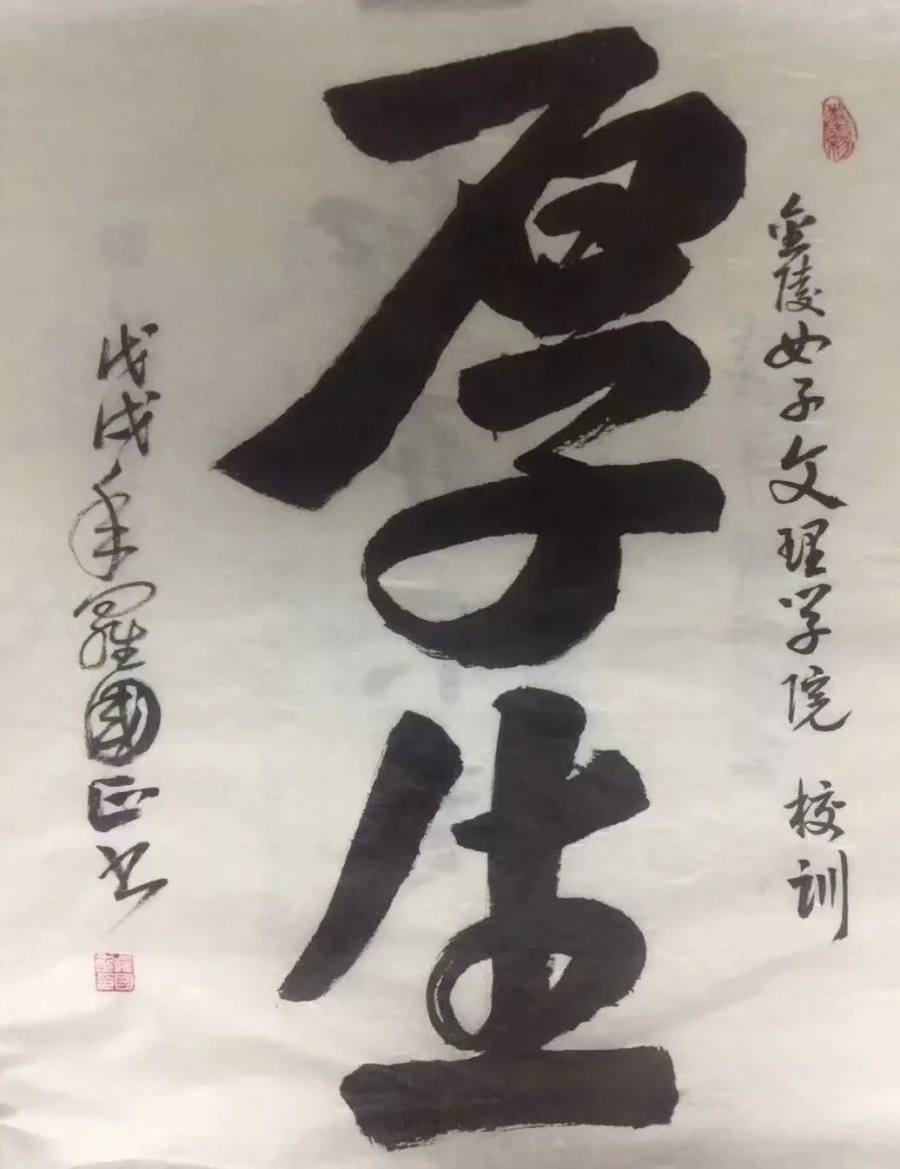 金陵女子文理学院 校训
厚生
戊戌年羅國正书